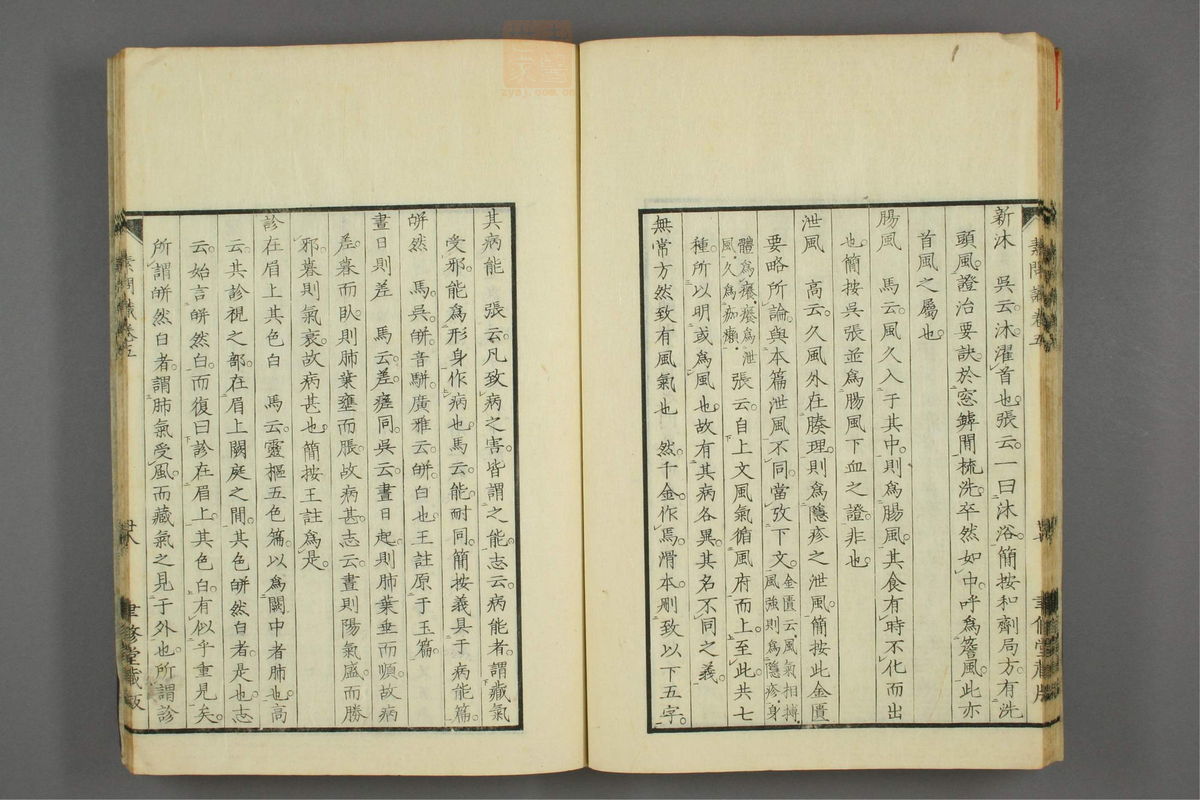 新沐　吳云。沐濯首也。張云。一曰沐浴。簡按和劑局方。有洗
頭風。證治要訣。於窓罅間梳洗。卒然如中。呼為簷風。此亦
首風之屬也。
腸風　馬云。風久入于其中。則為腸風。其食有時不化而出
也。簡按吳張並為腸風下血之證。非也。
泄風　高云。久風外在腠理。則為隱疹之泄風。簡按此金匱
要略所論。與本篇泄風不同。當攷下文。金匱云。風氣相搏。風強則為隱疹。身
體為癢。癢為泄風。久為痂癩。張云。自上文風氣循風府而上。至此共七
種。所以明或為風也。故有其病各異其名不同之義。
無常方然致有風氣也　然。千金作焉。滑本刪致以下五字。
素問識卷五
聿修堂藏版
其病能　張云。凡致病之害。皆謂之能。志云。病能者。謂藏氣
受邪。能為形身作病也。馬云。能耐同。簡按義具于病能篇。
皏然　馬吳。皏音駢。廣雅云。皏白也。王註原于玉篇。
晝日則差　馬云。差瘥同。吳云。晝日起。則肺葉垂而順。故病
差。暮而臥。則肺葉壅而脹。故病甚。志云。晝則陽氣盛。而勝
邪。暮則氣衰。故病甚也。簡按王註為是。
診在眉上其色白　馬云。靈樞五色篇。以為闕中者肺也。高
云。其診視之部。在眉上闕庭之間。其色皏然白者是也。志
云。始言皏然白。而復曰診在眉上。其色白。有似乎重見矣。
所謂皏然白者。謂肺氣受風。而藏氣之見于外也。所謂診
素問識卷五
聿修堂藏版